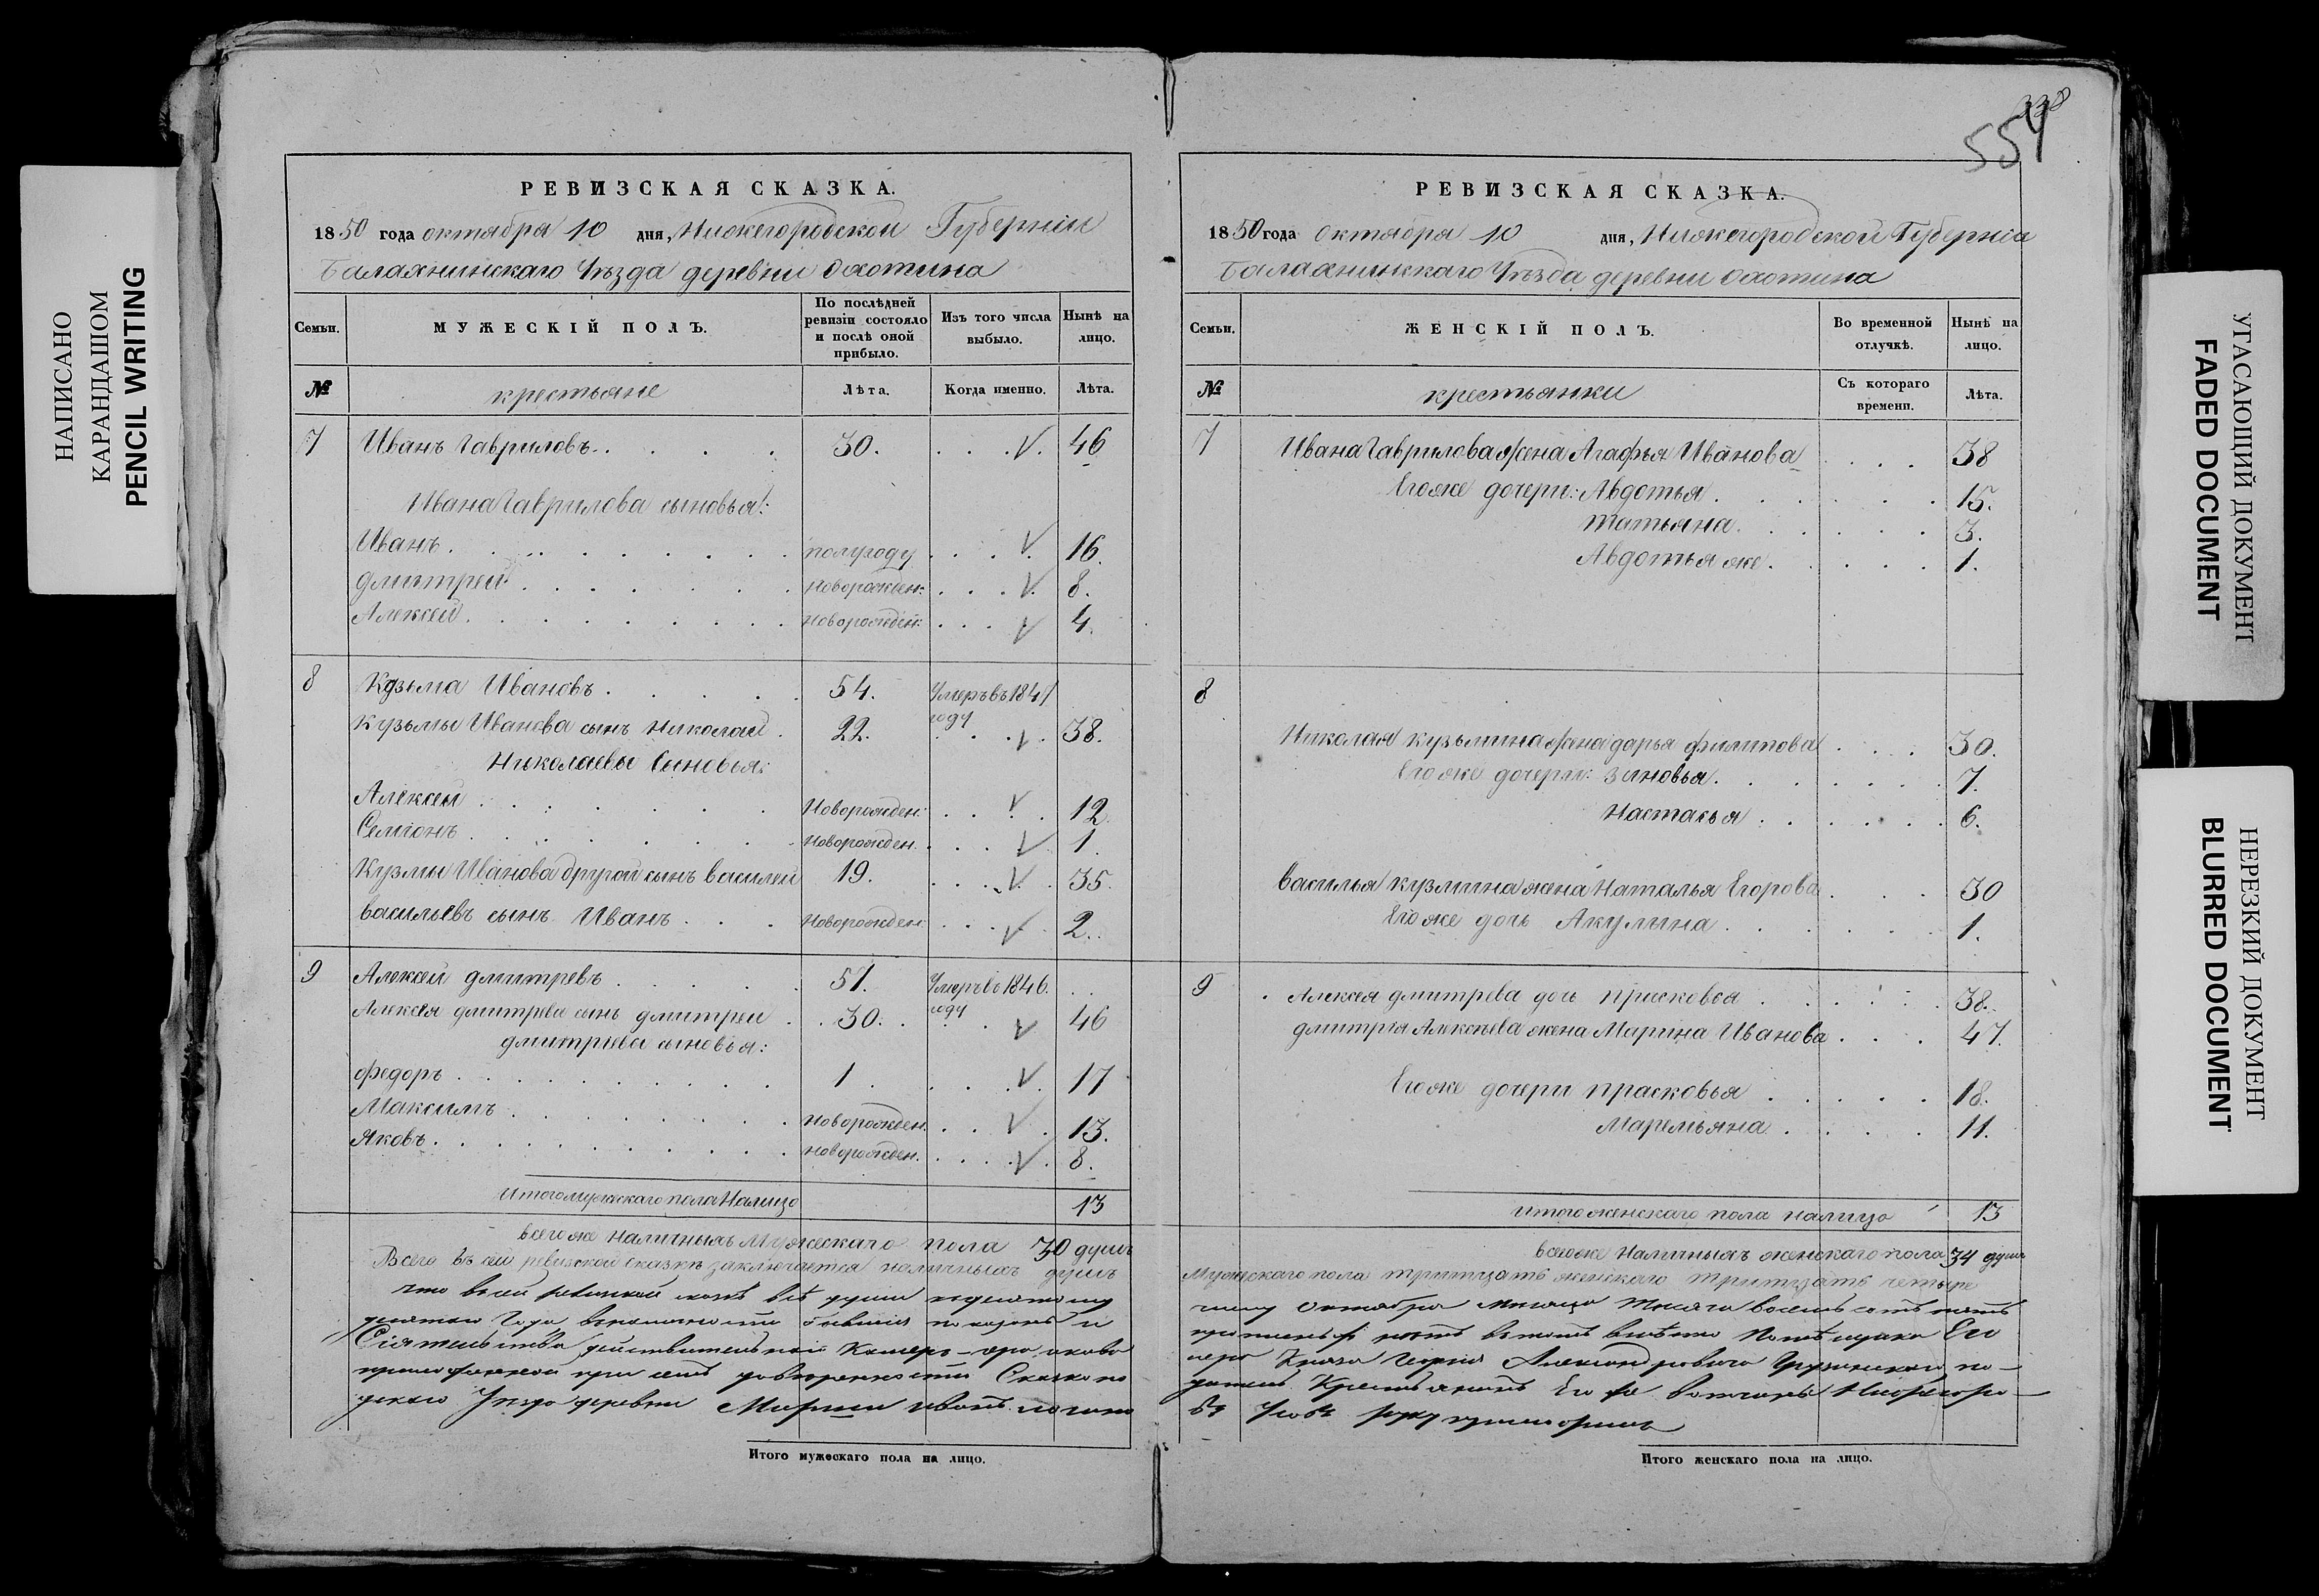 338
554
РЕВИЗСКАЯ СКАЗКА.
1850 года октября 10 дня, Нижегородской Губернiи
Балахнинскаго Уѣзда деревни Охотина
Семьи.
МУЖЕСКIЙ ПОЛЪ.
По послѣдней ревизiи состояло и послѣ оной прибыло.
Изъ того числа выбыло.
Нынѣ на лицо.
№
крестьяне
Лѣта.
Когда именно.
Лѣта.
7 Иванъ Гавриловъ. 30. 46
Ивана Гаврилова сыновья:
Иванъ. полугоду 16.
Дмитрей новорожден: 8.
Алексей. новорожден: 4.
8 Кузьма Ивановъ. 54. Умеръ въ 1847 году
Кузьмы Иванова сынъ Николай. 22. 38.
Николаевы Сыновья:
Алексей. Новорожден: 12.
Семiонъ. новорожден. 1.
Кузмы Иванова другой сынъ василей 19. 35.
васильевъ сынъ Иванъ. новорожден: 2.
9 Алексей дмитревъ 51. Умеръ въ 1846. году
Алексея дмитрева сынъ дмитрей 30. 46
дмитрiевы сыновья:
федоръ. 1. 17
Максимъ новорожден. 13.
Яковъ. новорожден. 8.
Итого мужескаго пола Налицо 13
всего же наличныхъ Мужескаго пола 30 душъ
Всего въ сей ревизской сказкѣ заключается наличныхъ душъ
что всей ревизской сказкѣ всѣ души
Года
Сiятельства действительнаго Камергера
при семъ доверенности Сказко по
Уезда деревни Иванъ
Итого мужескаго пола на лицо.
РЕВИЗСКАЯ СКАЗКА.
1850 года октября 10 дня, Нижегородской Губернiи
Балахнинскаго Уѣзда деревни Охотина
Семьи.
ЖЕНСКIЙ ПОЛЪ.
Во временной отлучкѣ.
Нынѣ на лицо.
№
крестьянки
Съ котораго времени.
Лѣта.
7 Ивана Гаврилова жена Агафья Иванова 38
Его же дочери: Авдотья. 15.
Татьяна. 3.
Авдотья же. 1.
8
Николая кузьмина жена дарья филипова 30.
Его же дочери: Зиновья. 7.
Настасья 6.
Василья кузмина жена Наталья Егорова 30
Его же дочь Акулина. 1.
9 Алексея дмитрева дочь прасковья 38.
дмитрiя Алексѣева жена Марина Иванова 47.
Его же дочери прасковья 18.
Маремьяна 11.
итого женскаго пола налицо 13
всего же Наличныхъ женскаго пола 34 душъ
Мужескаго пола тритцать женскаго тритцать четыре
Октября Месяца Тысяча восемь сотъ
Помѣщика Его
Князя Георгiя Александровича Грузинскаго по-
Крестьянинъ Его же вотчины Нижегоро-
руку приложилъ
Итого женскаго пола на лицо.
НАПИСАНО КАРАНДАШОМ
PENCIL WRITING
УГАСАЮЩИЙ ДОКУМЕНТ
FADED DOCUMENT
НЕРЕЗКИЙ ДОКУМЕНТ
BLURRED DOCUMENT